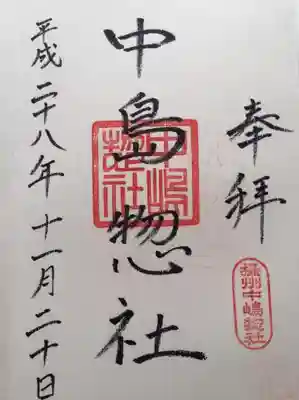 奉拝
摂州中嶋惣社
中島惣社
中嶋惣社
平成二十八年十一月二十日